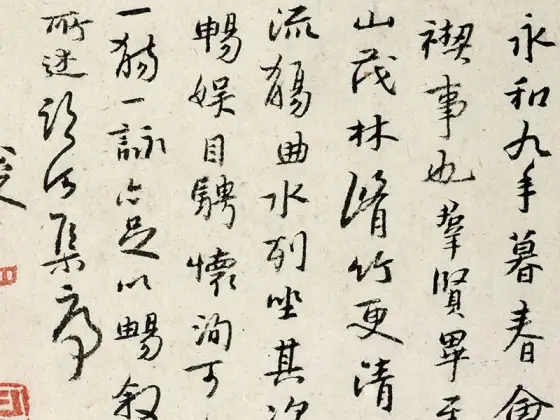 永和九年暮春會
禊事也羣賢畢至
山茂林脩竹更清
流觴曲水列坐其次
暢娛目騁懷洵可
一觴一詠亦足以暢敘
所述臨河集序